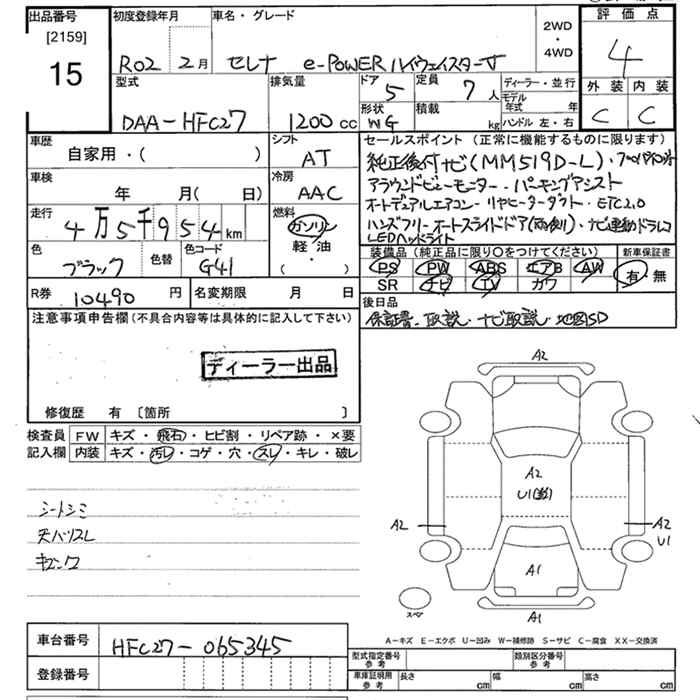 出品番号 初度登録年月 車名・グレード 2WD ・ 4WD 評価点
[2159]
15 R02 2月 セレナ e-POWER ハイウェイスターV 4
型式 排気量 ドア 5 定員 7人 ディーラー・並行 外装 内装
DAA-HFC27 1200cc 形状 WG 積載 kg モデル年式 年 ハンドル 左・右 C C
車歴 自家用・( ) シフト AT セールスポイント (正常に機能するものに限ります)
純正後付ナビ(MM519D-L)・
車検 年 月( 日) 冷房 AAC アラウンドビューモニター・パーキングアシスト
オートデュアルエアコン・リヤヒーターダクト・ETC2.0
走行 4万5千954km 燃料 ガソリン 軽油 ( ・ ) ハンズフリーオートスライドドア(両側)・ナビ連動ドラレコ
LEDヘッドライト
色 ブラック 色替 色コード G41 装備品 (純正品に限り○をつけてください) 新車保証書
PS PW ABS エアB AW 有・無
R券 10490円 名変期限 月 日 SR ナビ TV カワ
注意事項申告欄(不具合内容等は具体的に記入して下さい) 後日品
保証書・取説・ナビ取説・地図SD
ディーラー出品
修復歴 有 [箇所 ]
検査員 FW キズ・飛石・ヒビ割・リペア跡・×要
記入欄 内装 キズ・汚レ・コゲ・穴・スレ・キレ・破レ
シートシミ
天バリスレ
A2
A2
U1
A2 A2
U1
A1
スペア A1
A-キズ E-エクボ U-凹み W-補修跡 S-サビ C-腐食 XX-交換済
車台番号 HFC27-065345
型式指定番号 参考 類別区分番号 参考
登録番号 車庫証明用 参考 長さ cm 幅 cm 高さ cm